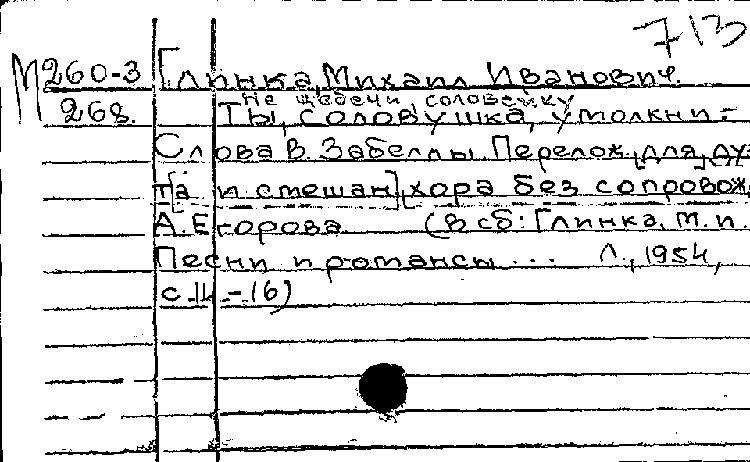 713
М 260-3 Глинка, Михаил Иванович.
Не щебечи, соловейку
268. Ты, соловушка, умолкни -
Слова В. Забеллы. Перелож. [для дуэ-
та и смешан] хора без сопровож.
А. Егорова (В сб: Глинка, М.И.
Песни и романсы ... Л., 1954,
с. 14-16)